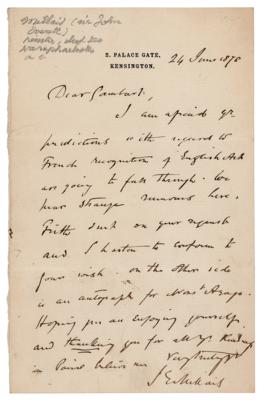 Millais (Sir John
Everett)
2. PALACE GATE,
KENSINGTON.
24 June 1878
Dear Gambart,
I am afraid yr
predictions with regard to
French recognition of English Art
are going to fall through. We
hear strange rumours here.
Frith sent on your request
and I hasten to conform to
your wish. on the other side
is an autograph for
Hoping you are enjoying yourself
and thanking you for all yr Kindness
in Paris believe me
Very truly yrs
J E Millais